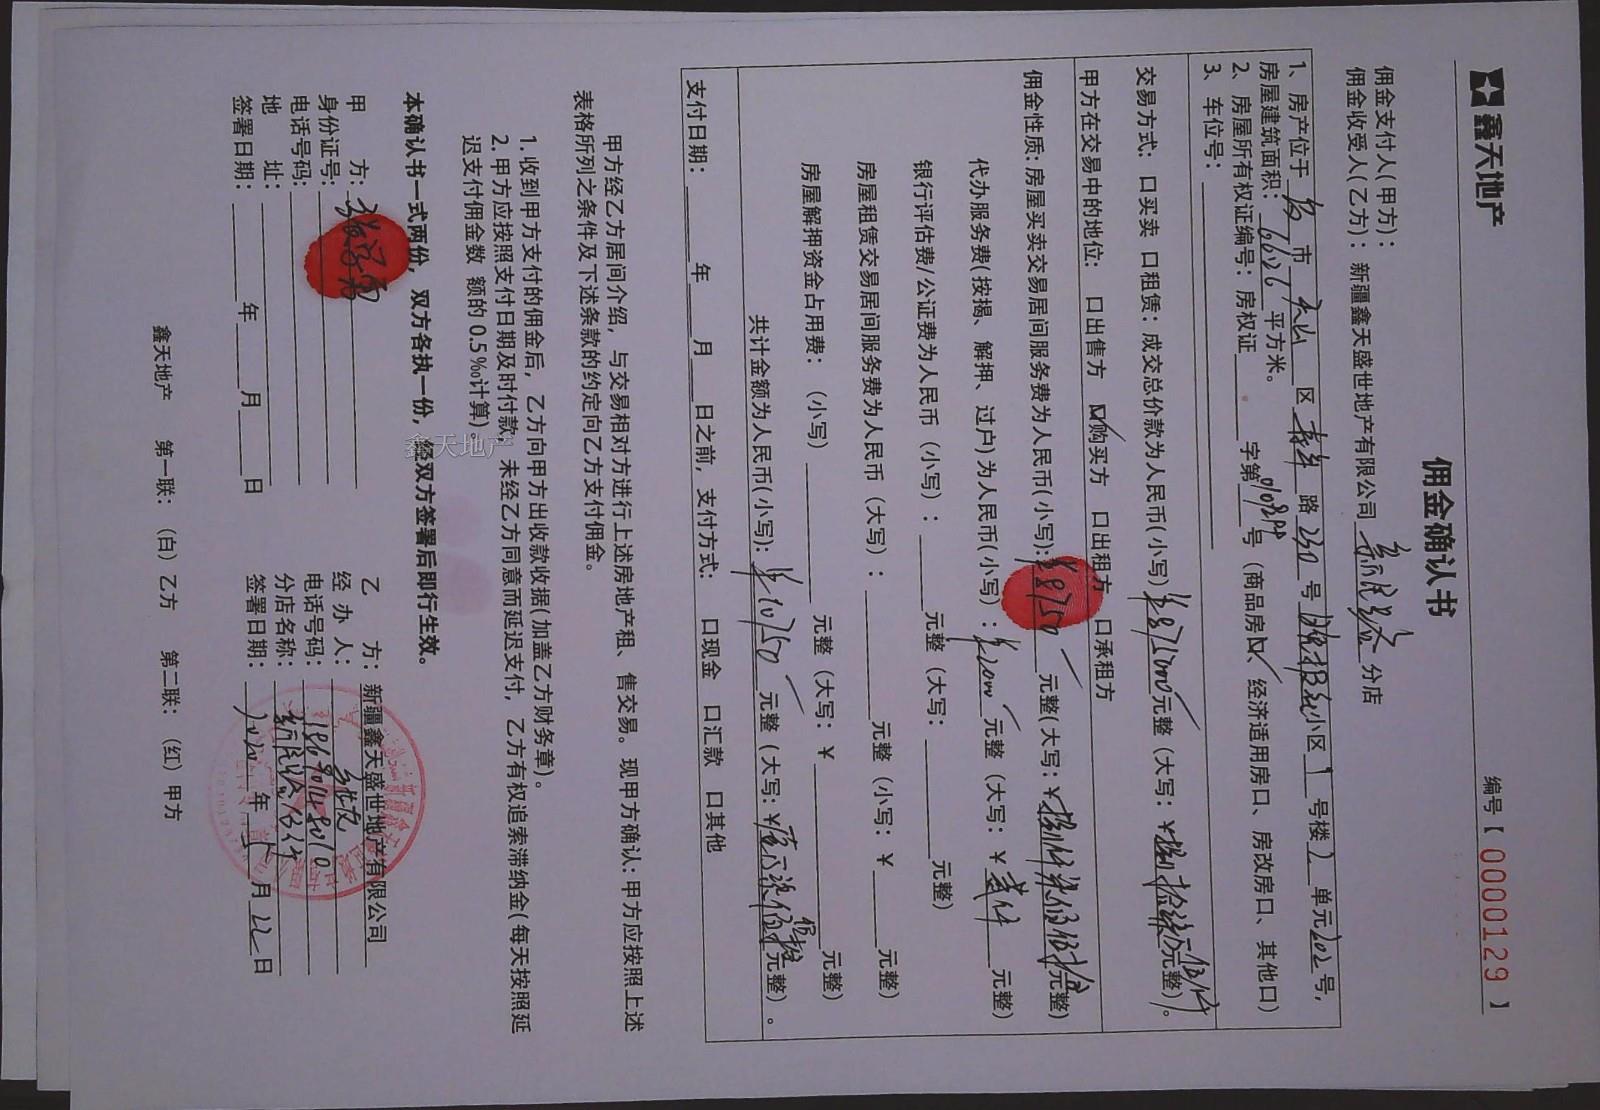 鑫天地产
编号【 00000129 】
佣金确认书
佣金支付人(甲方)：
佣金收受人(乙方)：新疆鑫天盛世地产有限公司 分店
1、房产位于 市 天山 区 路 230 号 小区 1 号楼 2 单元 202 号，
房屋建筑面积： 66.26 平方米。
2、房屋所有权证编号：房权证 字第 号（商品房口、经济适用房口、房改房口、其他口）
3、车位号：
交易方式：口买卖 口租赁；成交总价款为人民币(小写) ¥875000 元整（大写：¥捌拾柒万伍仟元整）。
甲方在交易中的地位： 口出售方 口购买方 口出租方 口承租方
佣金性质：房屋买卖交易居间服务费为人民币(小写)：¥8750 元整(大写：¥捌仟柒佰伍拾元整)
代办服务费(按揭、解押、过户)为人民币(小写)：¥2000 元整（大写：¥贰仟 元整）
银行评估费/公证费为人民币（小写）： 元整（大写： 元整）
房屋租赁交易居间服务费为人民币（大写）： 元整（小写：¥ 元整）
房屋解押资金占用费：（小写） 元整（大写：¥ 元整）
共计金额为人民币(小写)：¥10750 元整（大写：¥壹万零柒佰伍拾元整）。
支付日期： 年 月 日之前，支付方式： 口现金 口汇款 口其他
甲方经乙方居间介绍，与交易相对方进行上述房地产租、售交易。现甲方确认：甲方应按照上述
表格所列之条件及下述条款的约定向乙方支付佣金。
1. 收到甲方支付的佣金后，乙方向甲方出收款收据(加盖乙方财务章)。
2. 甲方应按照支付日期及时付款，未经乙方同意而延迟支付，乙方有权追索滞纳金(每天按照延
迟支付佣金数 额的 0.5‰计算)。
鑫天地产
本确认书一式两份，双方各执一份，经双方签署后即行生效。
甲 方：
身份证号：
电话号码：
地 址：
签署日期： 年 月 日
乙 方：新疆鑫天盛世地产有限公司
经 办 人：
电话号码：
分店名称：
签署日期： 2020 年 5 月 22 日
鑫天地产 第一联：（白）乙方 第二联：（红）甲方